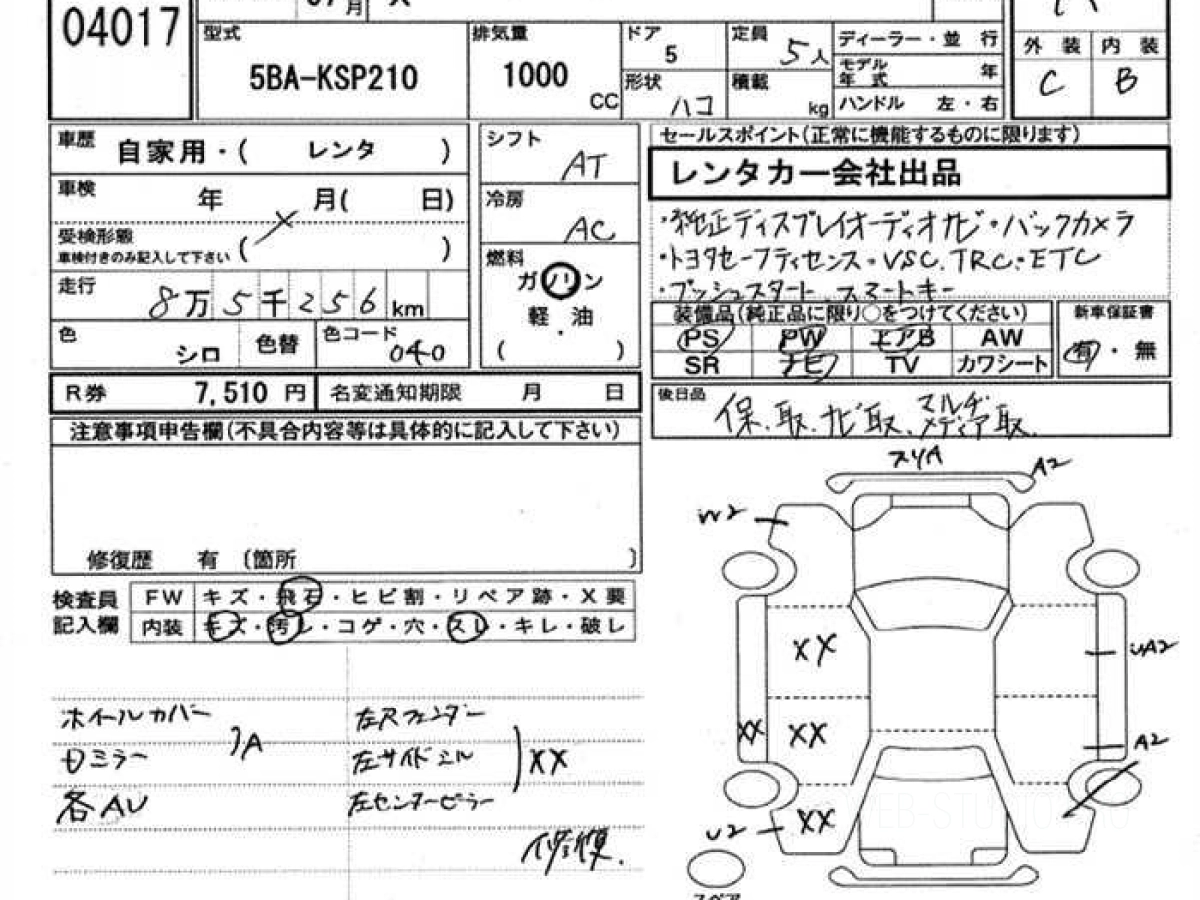 04017
07月
型式
5BA-KSP210
排気量
1000
CC
ドア
5
形状
ハコ
定員
5人
積載
kg
ディーラー・並 行
モデル
年 式
年
ハンドル 左・右
外 装
内 装
C
B
車歴
自家用・( レンタ )
車検
年 月( 日)
受検形態
車検付きのみ記入して下さい
( )
走行
8万5千256km
色
シロ
色替
色コード
040
シフト
AT
冷房
AC
燃料
ガソリン
軽・油
( )
セールスポイント(正常に機能するものに限ります)
レンタカー会社出品
・純正ディスプレイオーディオナビ・バックカメラ
・トヨタセーフティセンス・VSC.TRC・ETC
・プッシュスタート スマートキー
装備品(純正品に限り○をつけてください)
PS PW エアB AW
SR ナビ TV カワシート
新車保証書
有・無
後日品
保.取.ナビ取.マルチメディア取.
R券 7,510 円
名変通知期限 月 日
注意事項申告欄(不具合内容等は具体的に記入して下さい)
修復歴 有 〔箇所 〕
検査員
記入欄
FW キズ・飛石・ヒビ割・リペア跡・X要
内装 キズ・汚レ・コゲ・穴・スレ・キレ・破レ
ホイールカバー
Dミラー
A
各AU
左Rフェンダー
左サイドシル
左センターピラー
XX
修復.
スリA
A2
W2
XX
UA2
XX
XX
A2
U2
XX
スペア